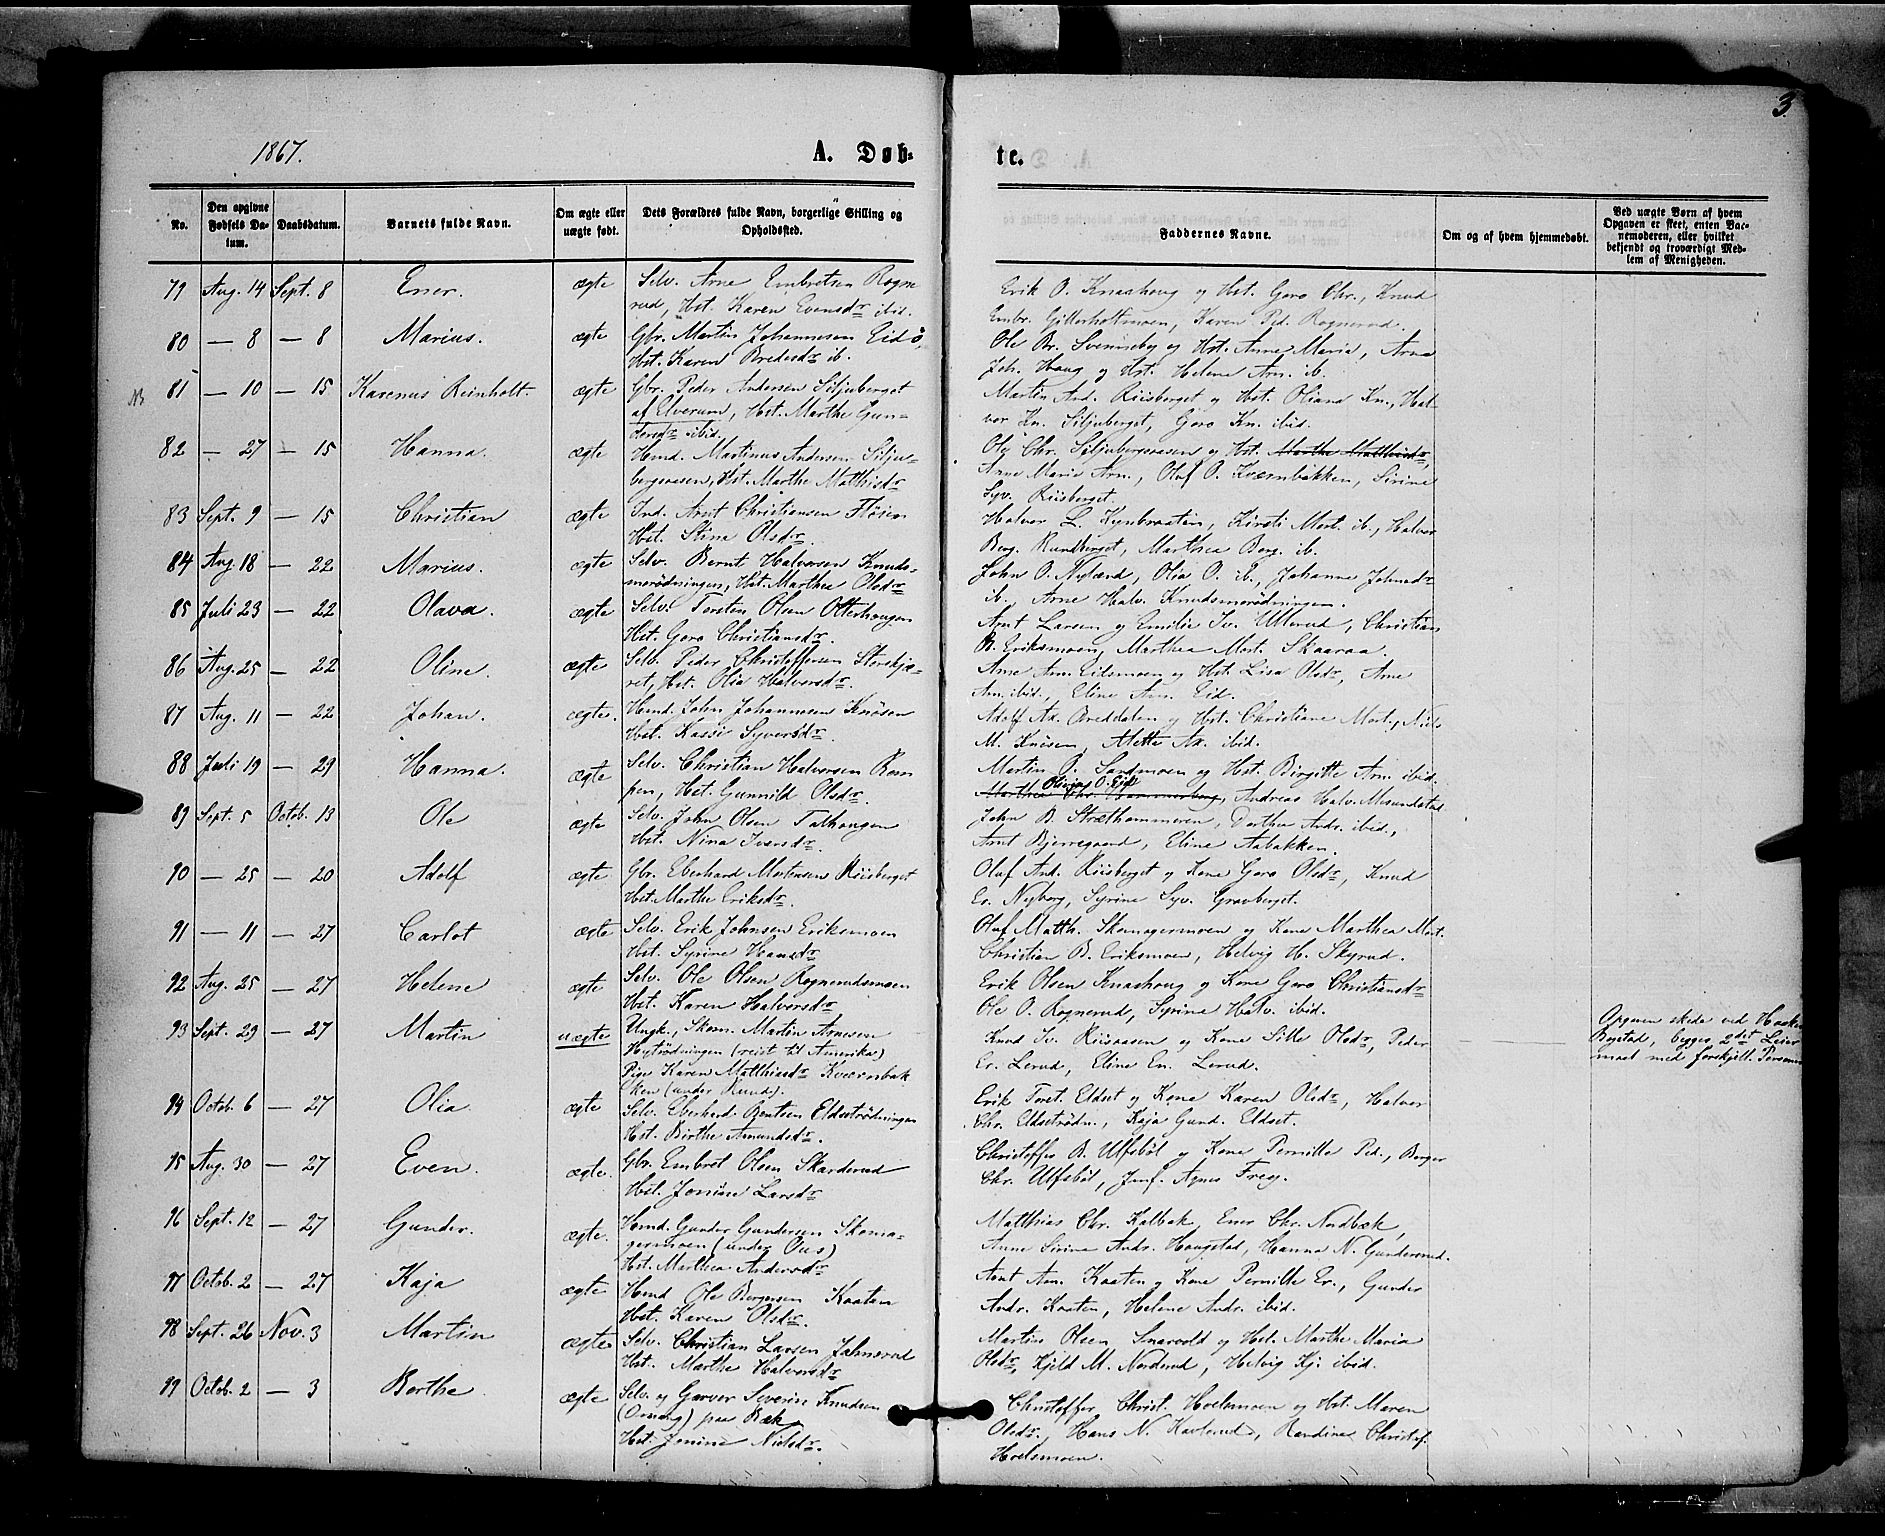 3
1867.
A. Døb-
te.
No.
Den opgivne
Fødsels Da-
tum.
Daabsdatum.
Barnets fulde Navn.
Om ægte eller
uægte født.
Dets Forældres fulde Navn, borgerlige Stilling og
Opholdssted.
Faddernes Navne.
Om og af hvem hjemmedøbt.
Ved uægte Børn af hvem
Opgaven er skeet, enten Bar-
nemoderen, eller hvilket
bekjendt og troværdigt Med-
lem af Menigheden.
79 Aug. 14 Sept. 8 Ener. ægte Selv. Arne Embretsen Rogne-
rud, Hst. Karen Evensdr ibid.
Erik O. Knashoug og Hst. Goro Chr., Knud
Embr. Gillerholtmoen, Karen Ped. Rognerud.
80 — 8 — 8 Marius. ægte Gbr. Martin Johannesen Eid ö,
Hst. Karen Bredesdr ib.
Ole Br. Svenneby og Hst. Anne Maria, Arne
Joh. Haug og Hst. Helene Arn. ib.
NB 81 — 10 — 15 Karenus Reinholt. ægte Gbr. Peder Andersen Siljuberget
af Elverum, Hst. Marthe Gun-
dersdr ibid.
Martin And. Riisberget og Hst. Oliana Kn., Hal-
vor Kn. Siljuberget, Goro Kn. ibid.
82 — 27 — 15 Hanna. ægte Hmd. Martinus Andersen Silju-
bergsaasen, Hst. Marthe Matthisdr
Ole Chr. Siljubergsaasen og Hst. Marthe Matthisdr,
Anne Marie Arn., Oluf O. Kværnbakken, Sirine
Syv. Riisberget.
83 Sept. 9 — 15 Christian ægte Ind. Arnt Christiansen Fløien
Hst. Stina Olsdr.
Halvor L. Kynbraaten, Kirsti Mort. ib., Halvor
Berg. Rundberget, Marthea Berg. ib.
84 Aug. 18 — 22 Marius. ægte Selv. Bernt Halvorsen Knuds-
morødningen, Hst. Marthea Olsdr
John O. Nylænd, Olia O. ib., Johanne Johnsdr
ib., Arne Halv. Knudsmorødningen.
85 Juli 23 — 22 Olava. ægte Selv. Torsten Olsen Otterhaugen
Hst. Goro Christiansdr.
Arnt Larsen og Emilie Iv. Ullerud, Christian
B. Eriksmoen, Marthea Mort. Skaaraa.
86 Aug. 25 — 22 Oline. ægte Selv. Peder Christoffersen Storskjæ-
ret, Hst. Olia Halvorsdr.
Arne Arn. Eidsmoen og Hst. Lisa Olsdr, Arne
Arn. ibid., Eline Arn. Eid.
87 Aug. 11 — 22 Johan. ægte. Hmd. John Johannesen Knösen
Hst. Kassi Syversdr.
Adolf Ax. Breddalen og Hst. Christiane Mort., Niels
M. Knösen, Mette Ax. ibid.
88 Juli 19 — 29 Hanna. ægte Selv. Christian Halvorsen Rom
pen, Hst. Gunnild Olsdr.
Martin J. Sandmoen og Hst. Birgitte Arn. ibid.
Olivia O. Eid
Marthea Chr. Hammerberg, Andreas Halv. Mesundstad
89 Sept. 5 Octob. 13 Ole ægte Selv. John Olsen Talhaugen
Hst. Nina Iversdr.
John B. Stræthammeren, Dorthea Andr. ibid.,
Arnt Bjerregaard, Eline Aabakken.
90 — 25 — 20 Adolf ægte. Gbr. Eberhard Mortensen Riisberget
Hst. Marthe Eriksdr.
Oluf And. Riisberget og Kone Goro Olsdr, Knud
Er. Nyborg, Syrine Syv. Gravberget.
91 — 11 — 27 Carlot ægte Selv. Erik Johnsen Eriksmoen
Hst. Syrine Hansdr
Oluf Matth. Skomagermoen og Kone Marthea Mort.
Christian B. Eriksmoen, Helvig H. Skyrud.
92 Aug. 25 — 27 Helene ægte Selv. Ole Olsen Rognerudsmoen
Hst. Karen Halvorsdr
Erik Olsen Knashoug og Kone Goro Christiansdr
Ole O. Rognerud, Syrine Halv. ibid.
93 Sept. 29 — 27 Martin uægte Ungk., Skom. Martin Arnesen
Hytrödningen (reist til Amerika)
Pige Karen Matthiasdr Kværnbak
ken (under Rund).
Knud Iv. Riisaasen og Kone Sille Olsdr, Peder
Er. Lerud, Eline En. Lerud.
Opgaven skede ved Haaken
Bystad, begges 2det Leier
maal med forskjell. Personer
94 Octob. 6 — 27 Olia ægte Selv. Eberhard Berntsen Eldsetrødningen
Hst. Birthe Amundsdr.
Erik Torst. Eldset og Kone Karen Olsdr, Halvor
Chr. Eldsetrødn., Kaja Gund. Eldset.
95 Aug. 30 — 27 Even. ægte. Gbr. Embret Olsen Skarderud
Hst. Jonine Larsdr
Christoffer B. Ulfsböl og Kone Pernille Ped., Berger
Chr. Ulfsböl, Jmf. Agnes Frey.
96 Sept. 12 — 27 Gunder. ægte. Hmd. Gunder Gundersen Skoma-
germoen (under Ous)
Hst. Marthea Andersdr
Matthias Chr. Kalbak, Ener Chr. Nordbæk,
Anne Sirine Andr. Haugstad, Hanna N. Gundersrud.
97 Octob. 2 — 27 Kaja ægte Hmd Ole Bergersen Kaaten
Hst. Karen Olsdr.
Arnt Am. Kaaten og Kone Pernille Er., Gunder
Andr. Kaaten, Helene Andr. ibid.
98 Sept. 26 Nov. 3 Martin ægte Selv. Christian Larsen Jahnsrud
Hst. Marthe Halvorsdr
Martin Olsen Snarvold og Hst. Marthe Maria
Olsdr, Kjeld M. Norderud, Helvig Kj. ibid.
99 Octob. 2 — 3 Berthe ægte Selv. og Garver Severin Knudsen
(Omang) paa Bæk
Hst. Jenine Nielsdr.
Christoffer Christ. Hoelsmoen og Hst. Maren
Olsdr, Hans N. Kavlerud, Randine Christof.
Hoelsmoen.